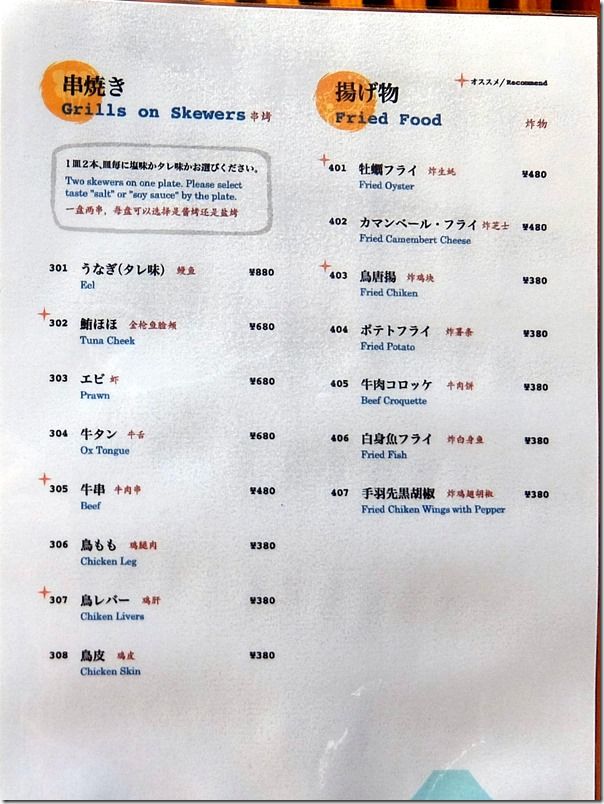 串焼き
Grills on Skewers 串烤
1皿2本、皿毎に塩味かタレ味かお選びください。
Two skewers on one plate. Please select
taste "salt" or "soy sauce" by the plate.
一盘两串，每盘可以选择是酱烤还是盐烤
301 うなぎ(タレ味) 鳗鱼 ¥880
Eel
302 鮪ほほ 金枪鱼脸颊 ¥680
Tuna Cheek
303 エビ 虾 ¥680
Prawn
304 牛タン 牛舌 ¥680
Ox Tongue
305 牛串 牛肉串 ¥480
Beef
306 鳥もも 鸡腿肉 ¥380
Chicken Leg
307 鳥レバー 鸡肝 ¥380
Chiken Livers
308 鳥皮 鸡皮 ¥380
Chicken Skin
オススメ/Recommend
揚げ物
Fried Food 炸物
401 牡蠣フライ 炸生蚝 ¥480
Fried Oyster
402 カマンベール・フライ 炸芝士 ¥480
Fried Camembert Cheese
403 鳥唐揚 炸鸡块 ¥380
Fried Chiken
404 ポテトフライ 炸薯条 ¥380
Fried Potato
405 牛肉コロッケ 牛肉饼 ¥380
Beef Croquette
406 白身魚フライ 炸白身鱼 ¥380
Fried Fish
407 手羽先黒胡椒 炸鸡翅胡椒 ¥380
Fried Chiken Wings with Pepper